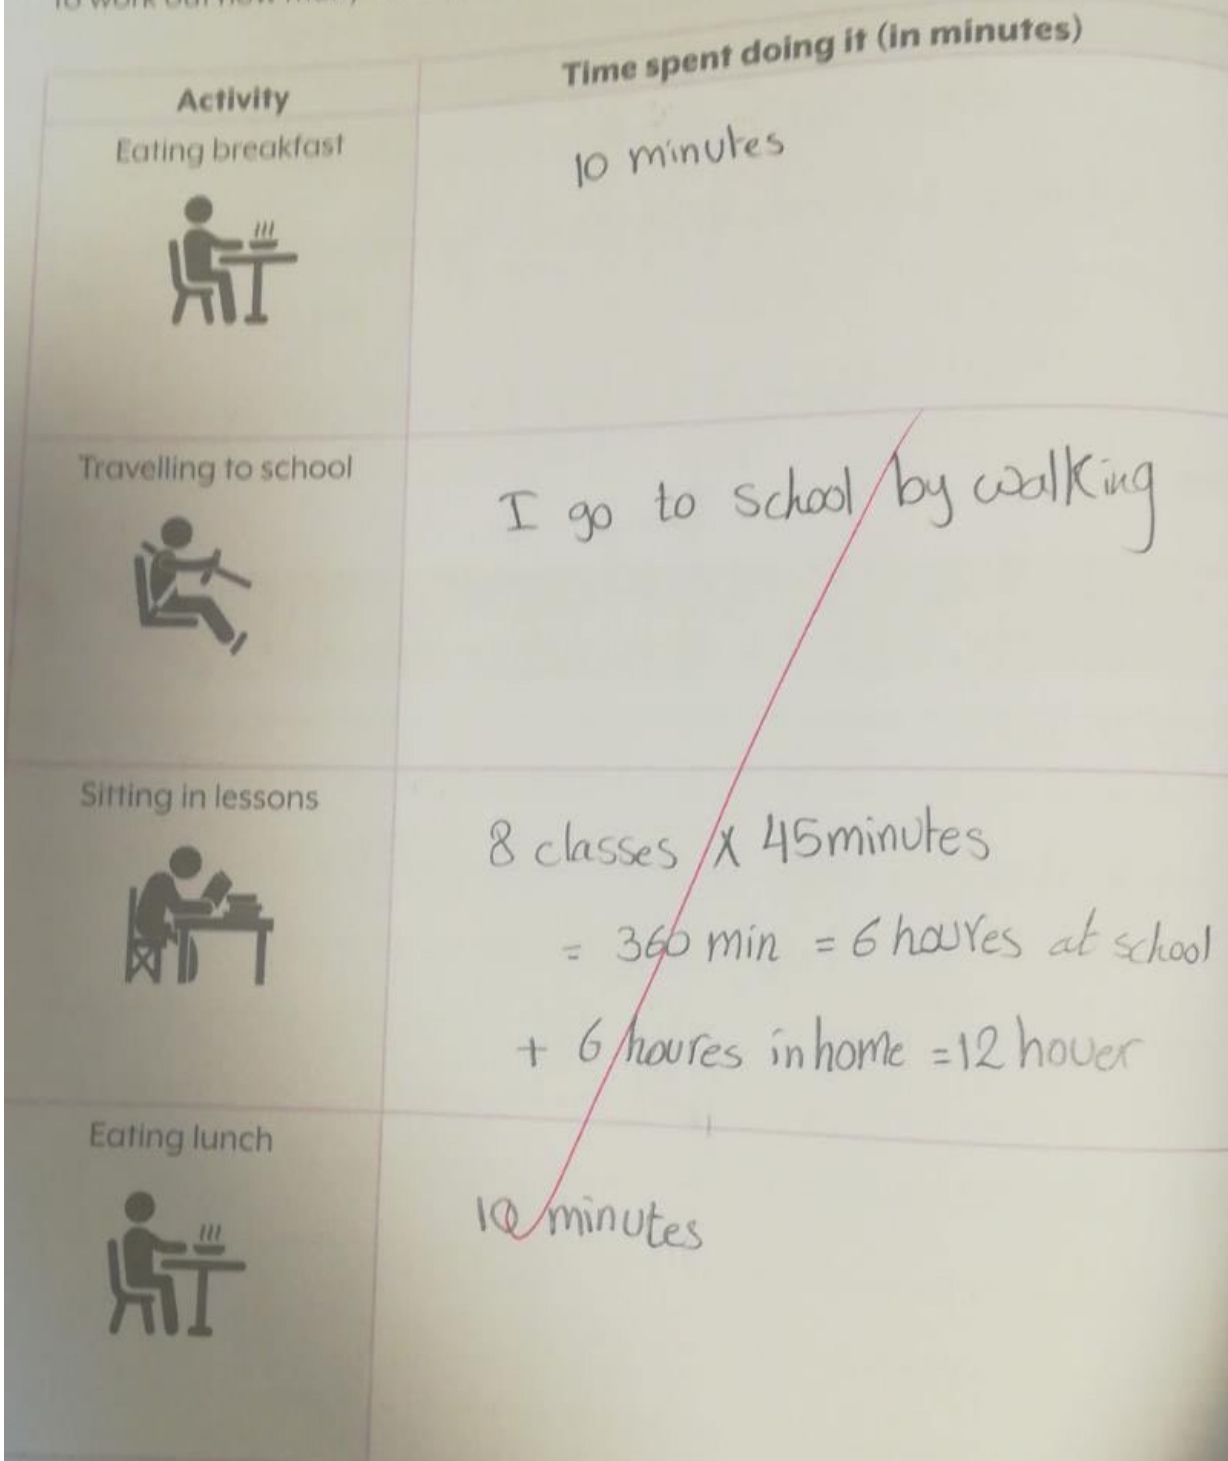 Activity
Time spent doing it (in minutes)
Eating breakfast
10 minutes
Travelling to school
I go to school by walking
Sitting in lessons
8 classes x 45 minutes
= 360 min = 6 houres at school
+ 6 houres in home = 12 houer
Eating lunch
10 minutes